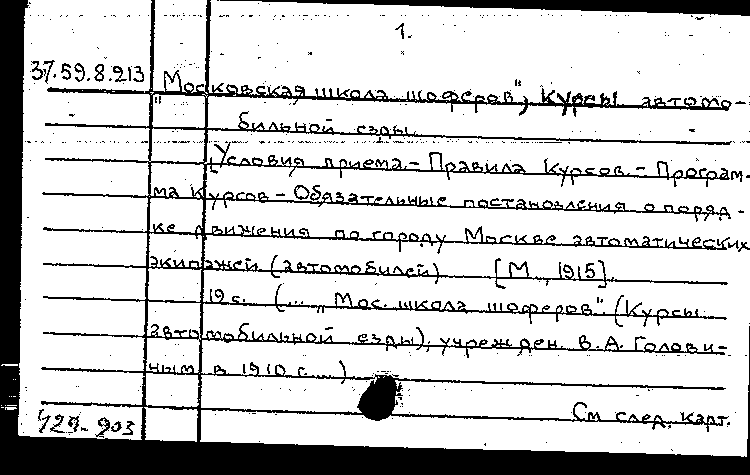 1.
37.59.8.213 „Московская школа шоферов", курсы автомо-
бильной езды.
[Условия приема. - Правила Курсов. - Програм-
ма Курсов - Обязательные постановления о поряд-
ке движения по городу Москве автоматических
экипажей (автомобилей) [М., 1915].
19 с. (... „Мос. школа шоферов" (Курсы
автомобильной езды), учрежден. В.А. Голови-
ным в 1910 г. ...)
См след. карт.
429-903